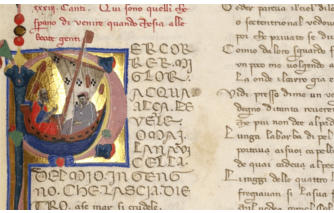 xxxiii. Canti. Qui sono quelli che
spano di venire quando che sia alle
beate genti.
ER COR
RER MI
GLOR.
ACQUA
ALÇA. LE
VELE.
OMAI.
LA NAVI
CELLA.
DEL MIO INGENG
NO. CHE LASCIA DIE
TRO. a se mar si crudele.
O der parea il ciel
o septentrional vedovo
poi che privato se di
Como da loro sguardo
un poco me volgendo a
La onde il carro gia
Vidi presso di me un ve
degno di tanta reveren
che piu non dee al padre
Lunga la barba di pe
portava a suoi capelli
de quai cadeva al pet
Li raggi delle quattro
fregiavan si la sua